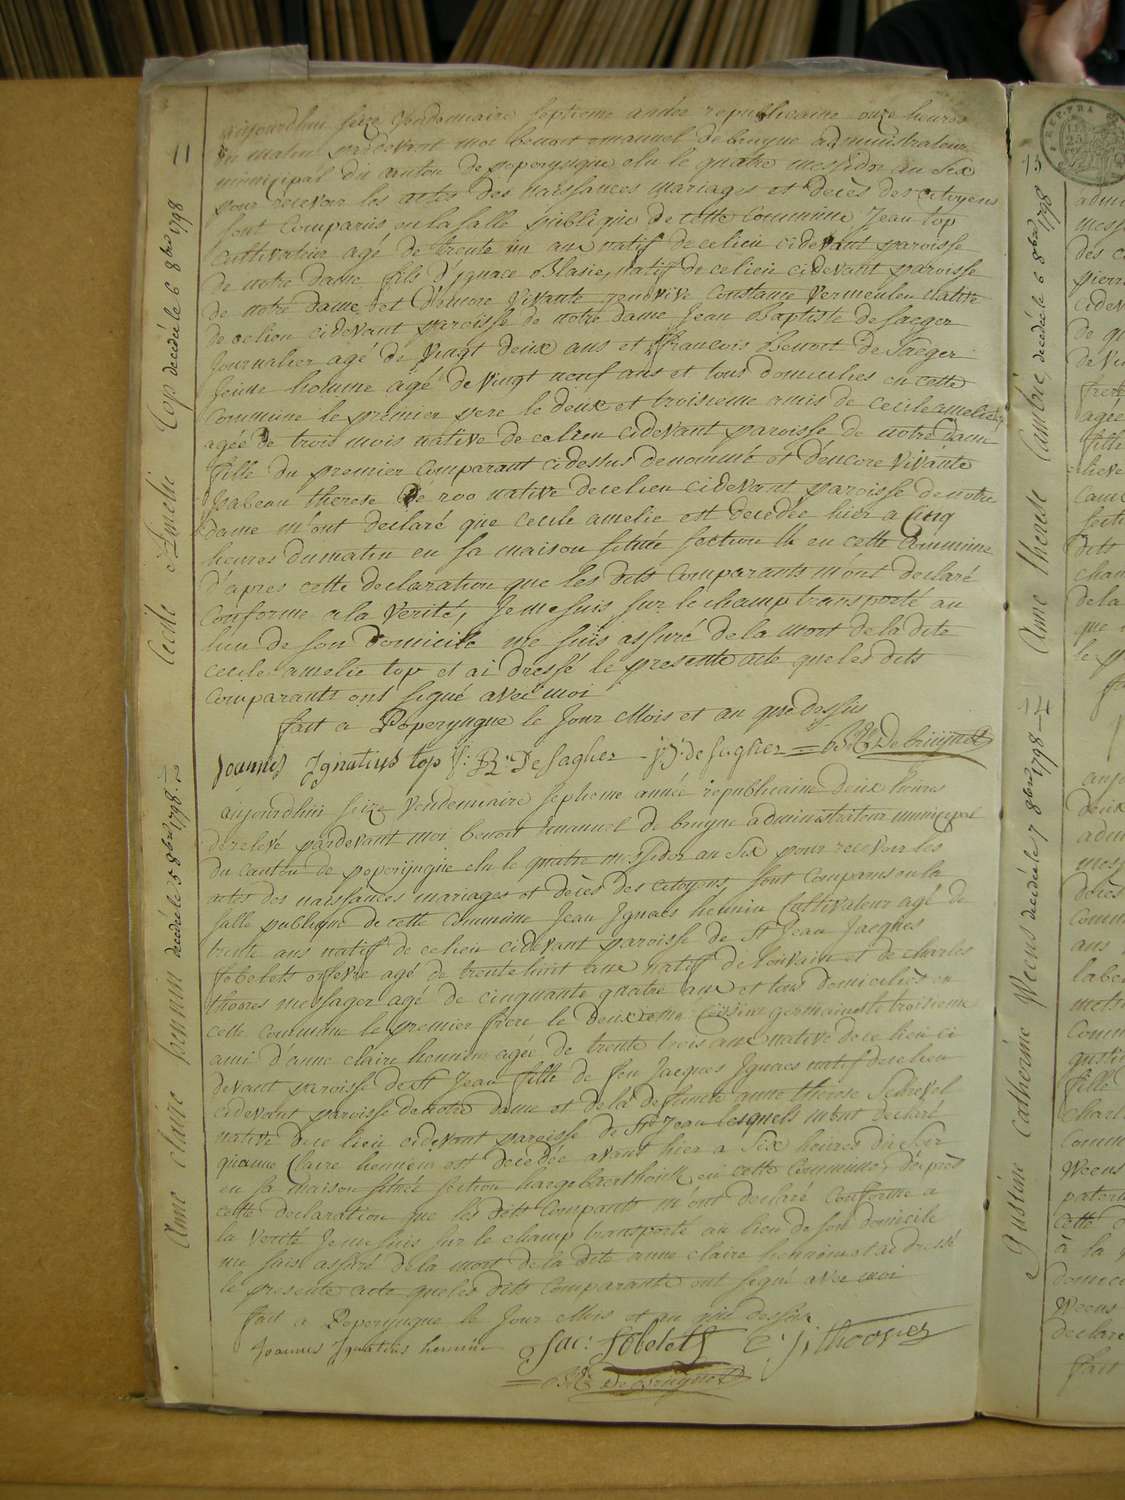 11
Cecile Amelie Top decedée le 6 8bre 1798
aujourdhui seize Vendemiaire septieme année republicaine onze heures
du matin pardevant moi benoit emanuel de bruyne administrateur
municipal du canton de poperyngue elu le quatre messidor an Six
pour recevoir les actes des naissances mariages et decès des citoyens
sont comparus en la salle publique de cette commune Jean top
cultivateur agé de trente un ans natif de ce lieu cidevant paroisse
de notre dame fils d'ignace Blasie, natif de ce lieu cidevant paroisse
de notre dame et d'encore Vivante genovive constance Vermeulen native
de ce lieu cidevant paroisse de notre dame Jean Baptiste de Saeger
Journalier agé de Vingt deux ans et François Benoit de Saeger
Jeune homme agé de vingt neuf ans et tous domiciliés en cette
commune le premier pere le deux et troisieme amis de cecile amelie
agée de trois mois native de ce lieu cidevant paroisse de notre dame
fille du premier comparant cidessus denommé et d'encore Vivante
Isabeau therese de roo native de ce lieu cidevant paroisse de notre
dame m'ont declaré que cecile amelie est decedée hier a Cinq
heures du matin en sa maison située section 11 en cette commune
d'apres cette declaration que les dits comparants m'ont declaré
conforme a la verité, Je me suis sur le champ transporté au
lieu de son domicile me suis assuré de la mort de la dite
cecile amelie top et ai dressé le presente acte que les dits
comparants ont signé avec moi
fait a Poperyngue le Jour Mois et an que dessus
Joannes Ignatius top f: Bt: De Sagher J: J: de sagher = B: E: De bruyne
12
Anne claire hennin decedée le 5 8bre 1798
aujourdhui seize Vendemiaire septieme année republicaine deux heures
de relevé pardevant moi benoit Emanuel de bruyne administrateur municipal
du canton de poperyngue elu le quatre messidor an Six pour recevoir les
actes des naissances mariages et decès des citoyens, sont comparus en la
salle publique de cette commune Jean Ignaes hennin Cultivateur agé de
trente ans natif de ce lieu cidevant paroisse de St Jean Jacques
fobelets orfevre agé de trente huit ans natif de louvain et de charles
thoores messager agé de cinquante quatre ans et tous domiciliés en
cette commune le premier frere le deuxieme Cousin germain et troisieme
ami d'anne claire hennin agée de trente trois ans native de ce lieu ci
devant paroisse de St Jean fille de feu Jacques Ignaes natif de ce lieu
cidevant paroisse de notre dame et de la defuncte anne therese Schrevel
native de ce lieu cidevant paroisse de St Jean lesquels m'ont declaré
qu'anne Claire hennin est decedée avant hier a Six heures du Soir
en sa maison située section haeghebaerthoek en cette commune, d'après
cette declaration que les dits comparants m'ont declaré conforme a
la verité Je me suis sur le champ transporté au lieu de son domicile
me suis assuré de la mort de la dite anne claire hennin et ai dressé
le presente acte que les dits comparants ont signé avec moi
fait a Poperyngue le Jour Mois et an que dessus
Joannes Ignatius hennin Jac: fobelets C: J: thoores
= B: E: De bruyne
13
Anne therese Cambie, decedée le 6 8bre 1798
14
Justine Catherine Weens decedée le 7 8bre 1798